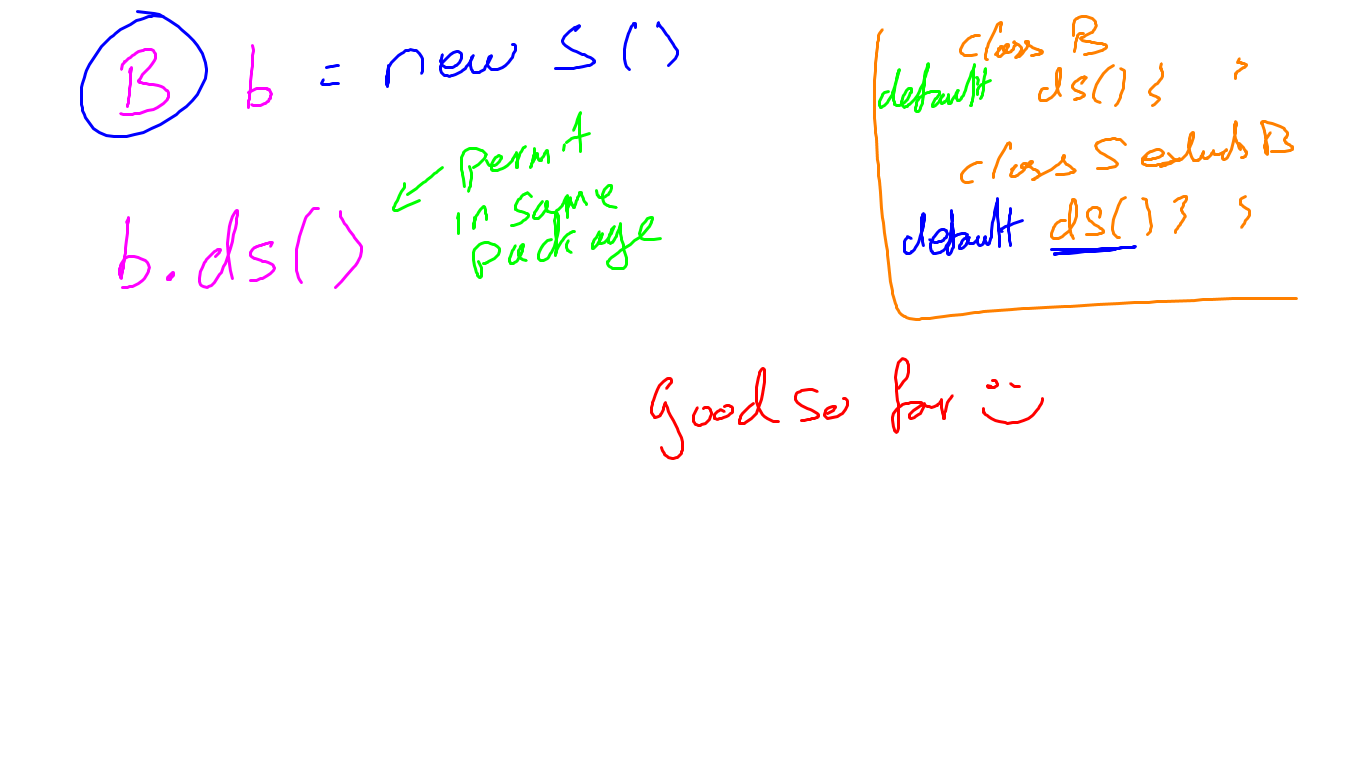 B b = new S ()
b.ds()
permit
in same
package
class B
default ds() { }
class S extends B
default ds() } }
Good so far